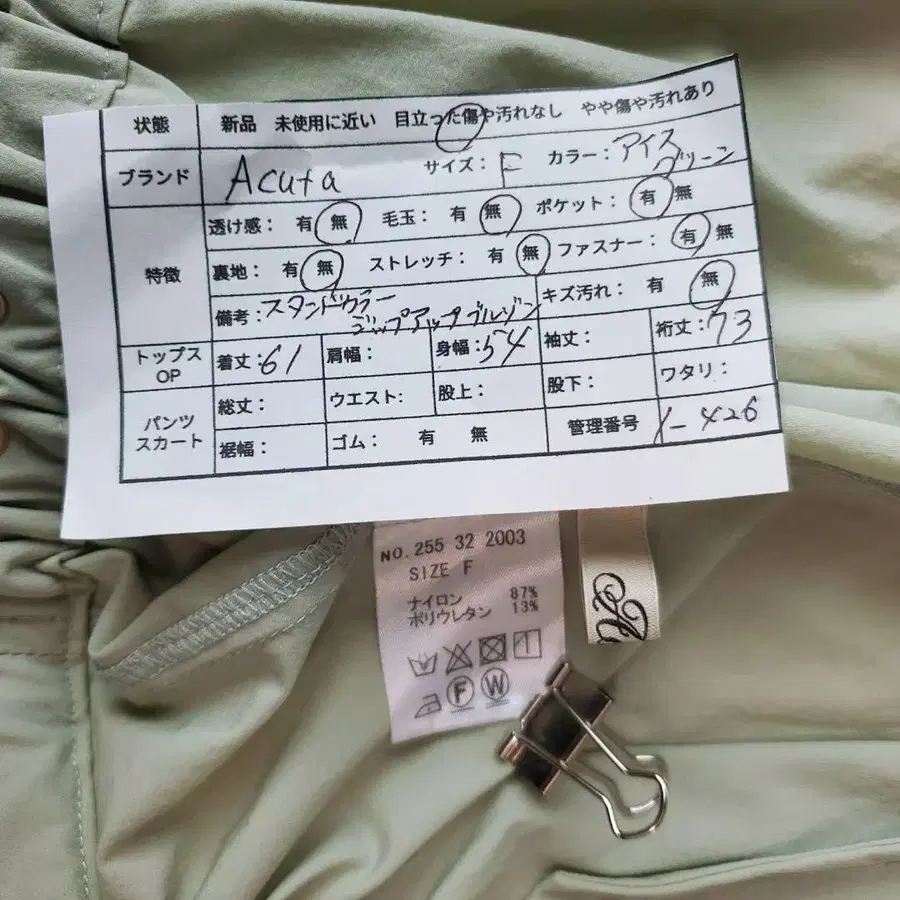 状態 新品 未使用に近い 目立った傷や汚れなし やや傷や汚れあり
ブランド Acuta サイズ: F カラー: アイスグリーン
特徴 透け感: 有 無 毛玉: 有 無 ポケット: 有 無
裏地: 有 無 ストレッチ: 有 無 ファスナー: 有 無
備考: スタンドカラー ジップアップブルゾン キズ汚れ: 有 無
トップス OP 着丈: 61 肩幅: 身幅: 54 袖丈: 裄丈: 73
パンツ スカート 総丈: ウエスト: 股上: 股下: ワタリ:
裾幅: ゴム: 有 無 管理番号 1-426
NO. 255 32 2003
SIZE F
ナイロン 87%
ポリウレタン 13%
F W